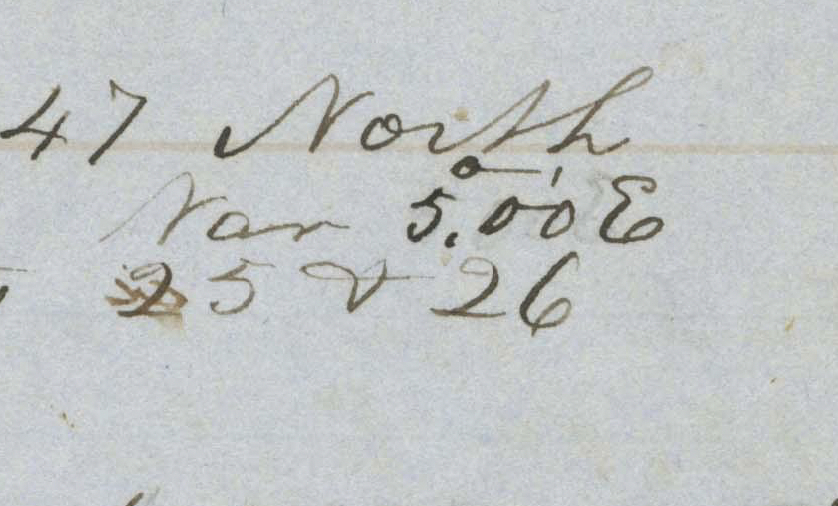 47 North
Var 5.°00' E
25 & 26